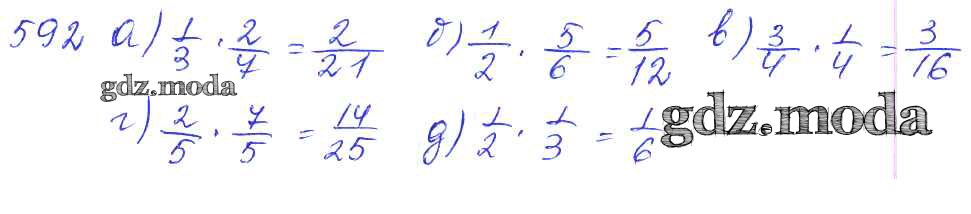 592 а) 1/3 · 2/7 = 2/21 б) 1/2 · 5/6 = 5/12 в) 3/4 · 1/4 = 3/16
gdz.moda
г) 2/5 · 7/5 = 14/25 д) 1/2 · 1/3 = 1/6 gdz.moda